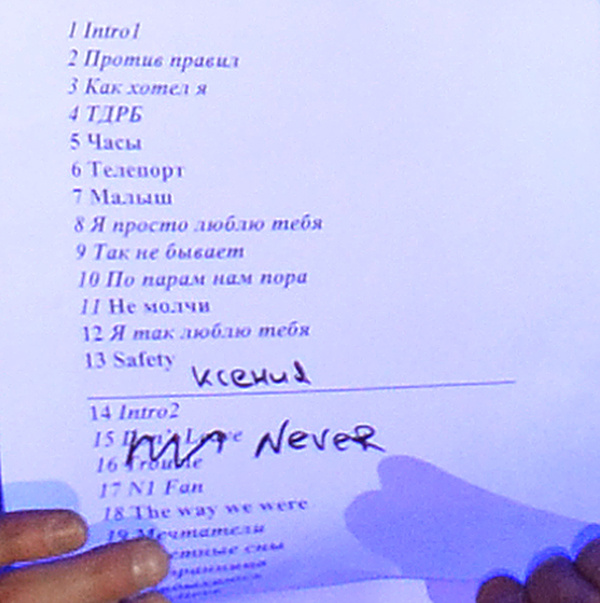 1 Intro1
2 Против правил
3 Как хотел я
4 ТДРБ
5 Часы
6 Телепорт
7 Малыш
8 Я просто люблю тебя
9 Так не бывает
10 По парам нам пора
11 Не молчи
12 Я так люблю тебя
13 Safety
Ксения
14 Intro2
15 Don't Leave
Never
16 Trouble
17 N1 Fan
18 The way we were
19 Мечтатели
сны